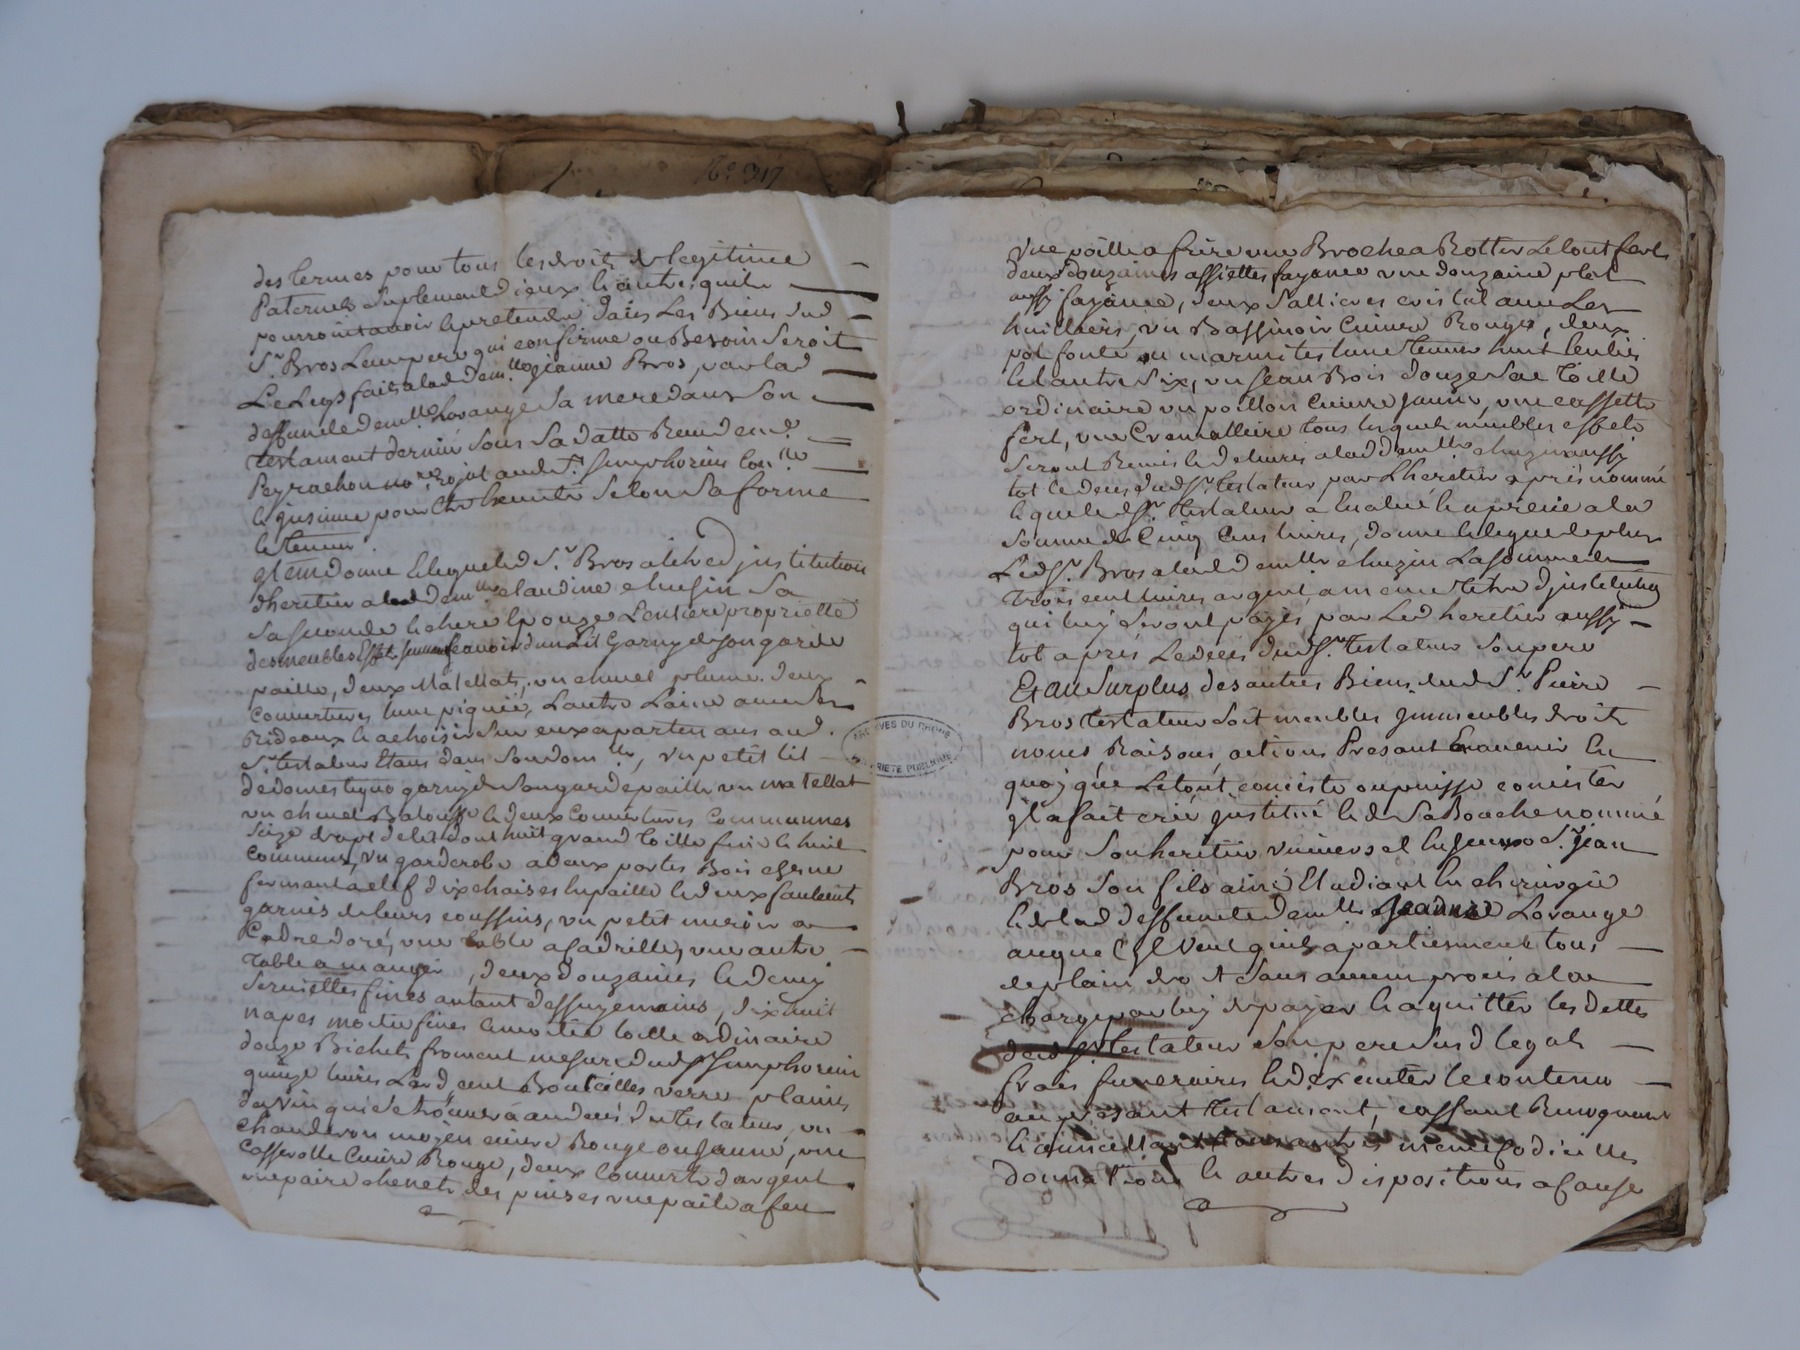 N.° 317
des termes pour tous les droits de legitime
Paternels suplement d'ieux et autres quils
pourroint avoir et pretendre dans Les Biens dud
S.r Bros Leur pere qui confirme ou Besoin Seroit
Le Legs fait alad dem.lle jeanne Bros, par lad
deffunte dem.lle Lorange Sa mere dans Son
testament dernier Sous Sa datte Reçu dem.e
Peyrachon no.re Rojal aud S.t Simphorien
le jusime pour Etre Executé Selon Sa forme
et teneur.
jtem donne et legue led S.r Bros a titre d'justitution
dheretier alad dem.lle claudine chuzin Sa
Sa seconde et chere Epouze Lentiere proprietté
des meubles Effets Savoir d'un Lit Garny de Son garde
paille, deux Matellats, un chevet plume deux
Couvertures lune piquée, L'autre Laine avec Les
Rideaux et a choisir Sur ceux apartenans aud.
S.r testateur Etans dans Son dom.lle, un petit lit
de domestique garny de Son garde paille un matellat
un chevet Balousse et deux Couvertures Communes
Seize draps de lit dont huit grand toille fine et huit
Communs, un garderobe a deux portes Bois chesne
fermant a clef dix chaises en paille et deux fauteuils
garnis de leurs coussins, un petit miroir a
Cadre doré, une table a cadrille, une autre
table a manger, deux douzaines et demy
Serviettes fines autant d'essuyemains, dix huit
napes moitié fines et moitié toille ordinaire
douze Bichets froment mesure dud S.t Simphorien
quinze livres Lard cent Bouteilles verre plaines
de vin qui Se trouvera au deces du testateur, un
chauderon moyen cuivre Rouge ou jaune, une
Casserolle Cuivre Rouge, deux Couverts d'argent
une paire chenets des pinses une paile a feu
ARCHIVES DU RHONE
PROPRIETE PUBLIQUE
Une poille a frire une Broche a Rottir Le tout fert
deux douzaines assiettes fayance une douzaine plat
aussy fayance, deux Sallieres cristal avec Les
huilliers, un Bassinoir Cuivre Rouge, deux
pot fonte ou marmites lune tenant huit
et lautre Six, un Seau Bois douze Sac toille
ordinaire un poillon Cuivre jaune, une cassette
fert, une Cremalliere tous lesquels meubles effets
Seront Remis et delivrés alad dem.lle chuzin aussy
tot le deces dud S.r testateur par L'heretier après nommé
et que led S.r testateur a Evalué et aprecié a la
Somme de Cinq Cens livres, donne et legue de plus
Led S.r Bros alad dem.lle chuzin La Somme de
trois cent livres argent, a meme titre d'justitution
qui luy Seront payés par Led heretier aussy
tot après Le deces dud S.r testateur Son pere
Et au Surplus des autres Biens dud S.r Pierre
Bros testateur Soit meubles jmmeubles droits
noms, Raisons, actions Present Et avenir En
quoy que Le tout conciste ou puisse concister
jl a fait créé justitué et de Sa Bouche nommé
pour Son heretier universel S.r jean
Bros Son fils ainé Etudiant En chirurgie
et de lad deffunte dem.lle jeanne Lorange
auquel jl veut quils apartiennent tous
de plain droit Sans aucun procés a la
charge par luy de payer et aquitter les dettes
dud S.r testateur Son pere Susd legats
frais funeraires et d'executer le contenu
au present testament, cassant Revoquant
et annullant tous autres meme Codicilles
donnations et autres dispositions a cause